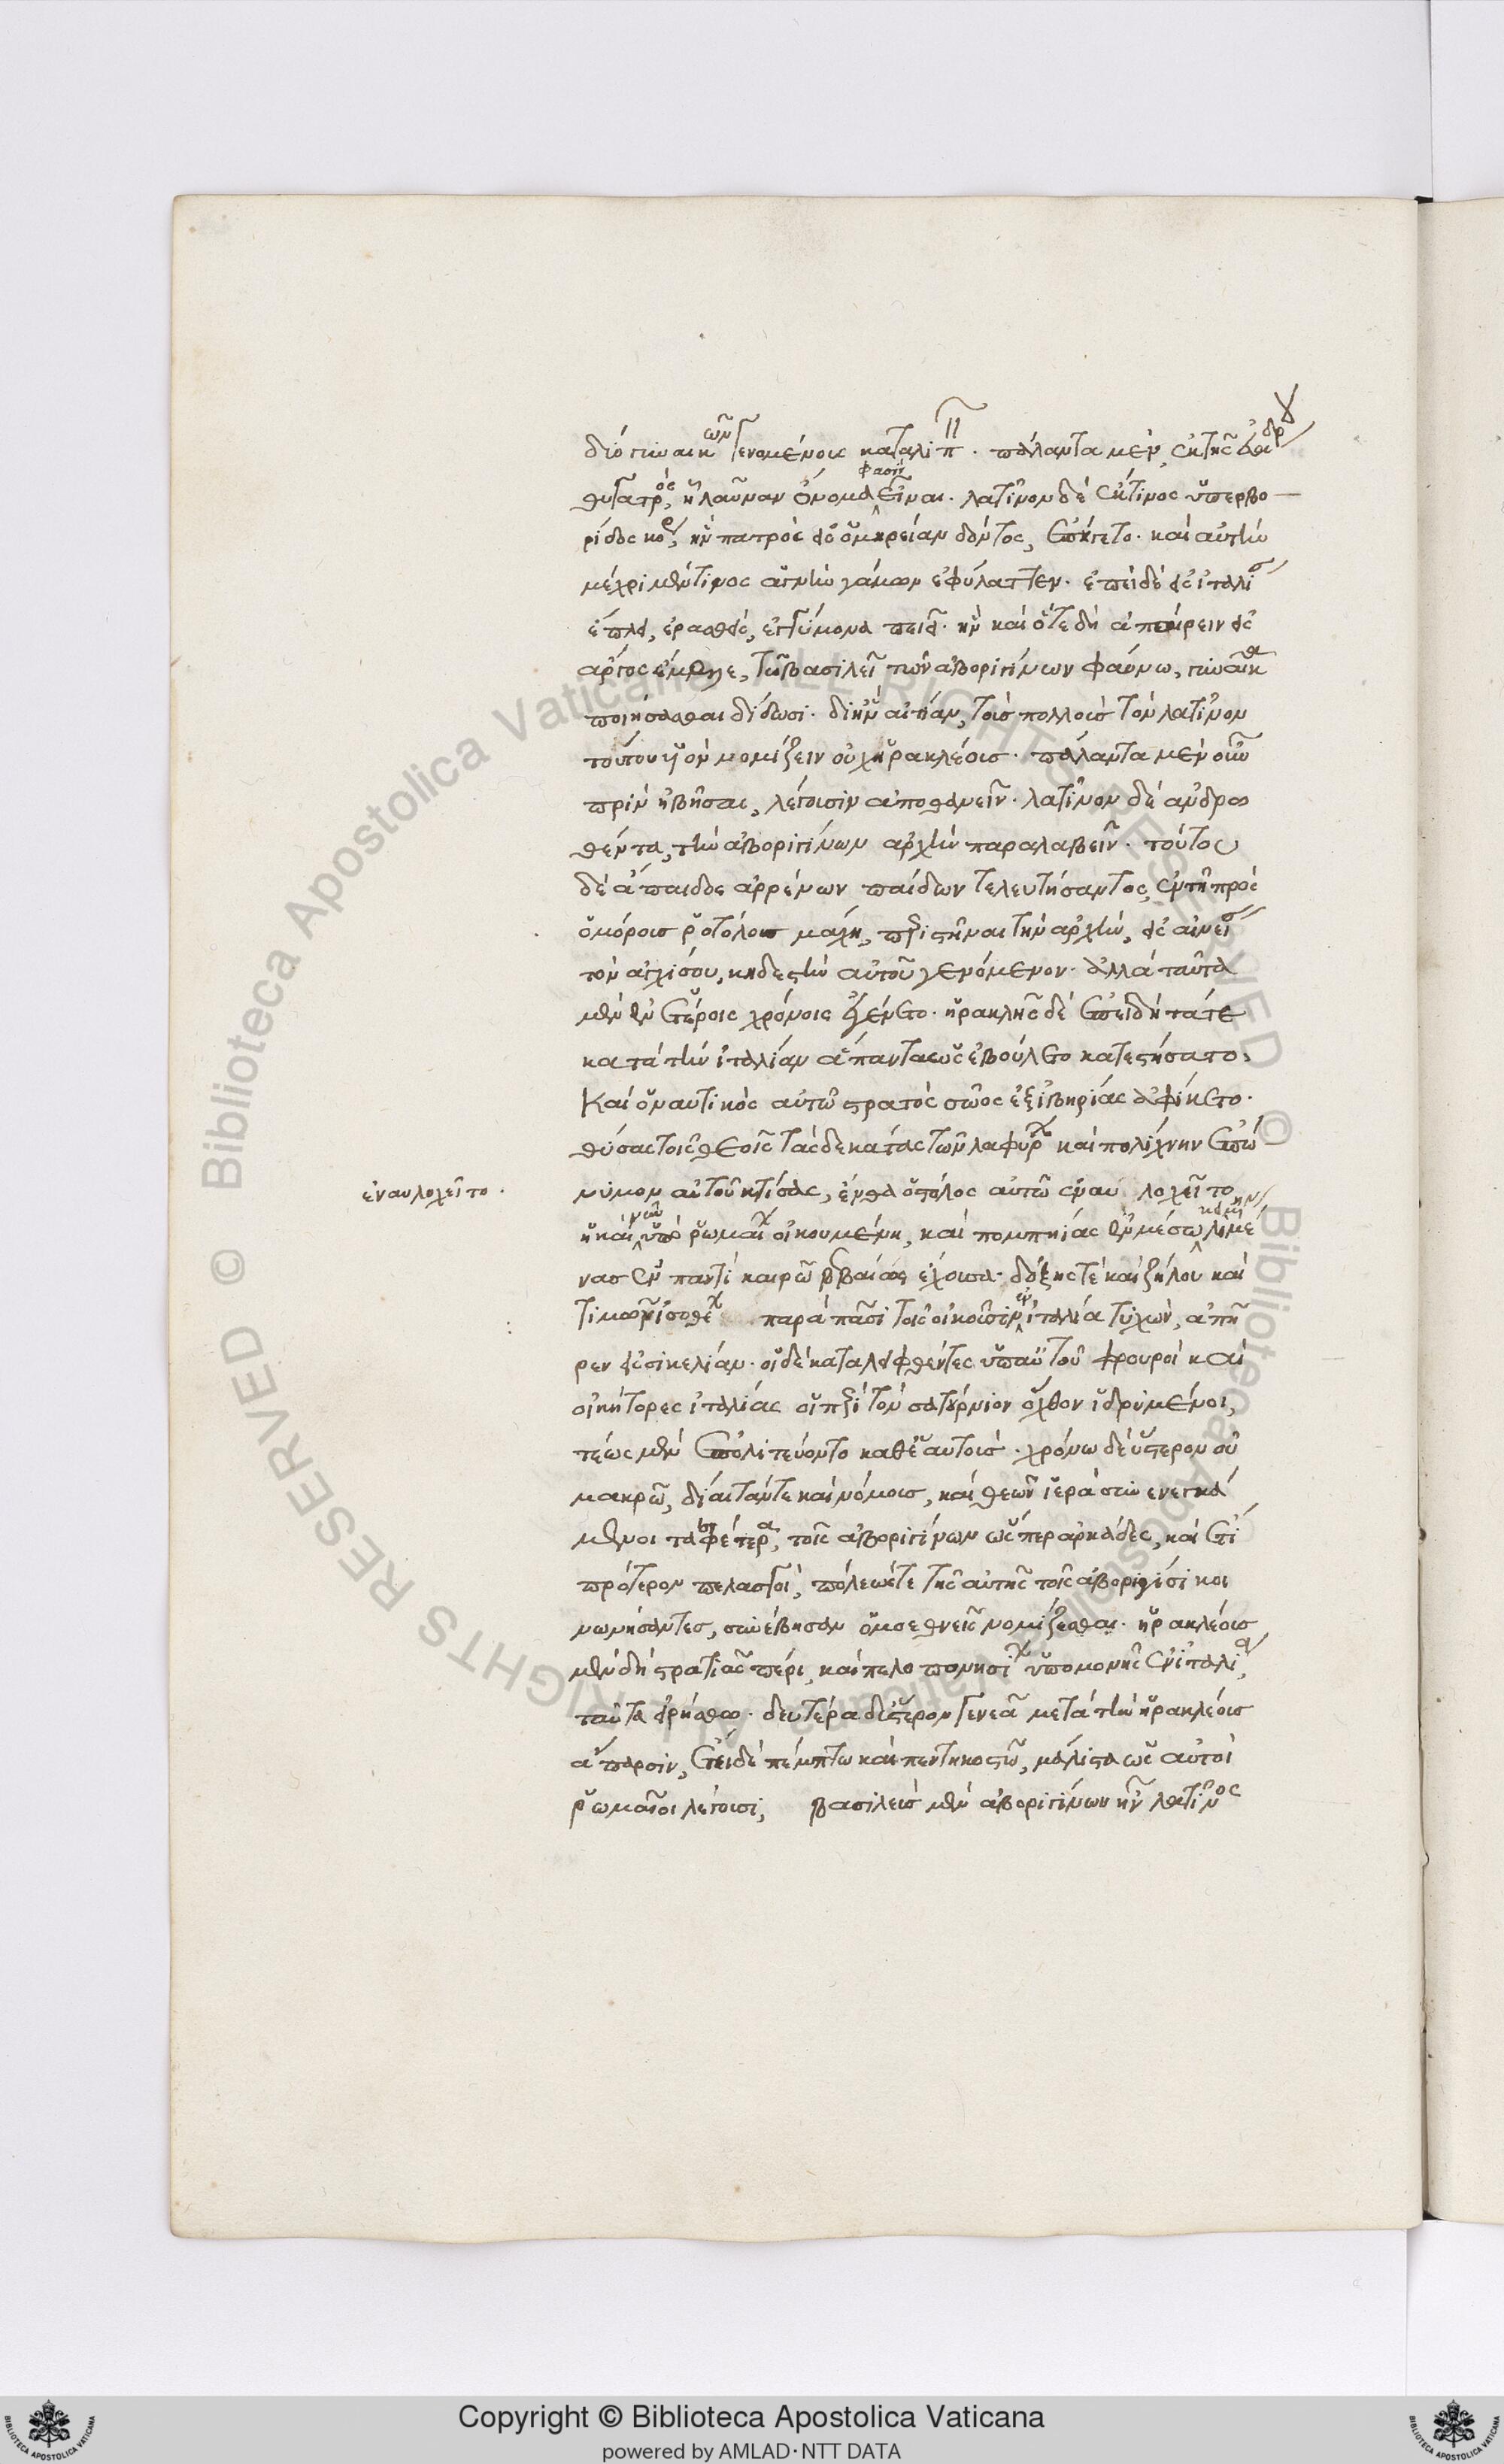 δύο γυναικῶν γενομένους καταλιπ. πάλαντα μὲν, ἐκ τῆς εὐάνδρ
θυγατρὸς, ἣ λαῦναν ὄνομα φασὶν εἶναι. λατῖνον δὲ ἔκ τινος ὑπερβο
ρίδος κόρ, ἣν πατρὸς εἰς ὁμηρείαν δόντος, ἐπήγετο. καὶ αὐτὴν
μέχρι μέν τινος ἁγνὴν γάμων ἐφύλαττεν. ἐπειδὲ εἰς ἰταλί
ἔπλει, ἐρασθεὶς, ἐγκύμονα ποιεῖ. ἣν καὶ ὅτε δὴ ἀπαίρειν εἰς
ἄργος ἔμελλε, τῶ βασιλεῖ τῶν ἀβοριγίνων φαύνω, γυναῖκα
ποιήσασθαι δίδωσι. δι' ἣν αἰτίαν, τοὺς πολλοὺς τὸν λατῖνον
τούτου υἱὸν νομίζειν οὐχ ἡρακλέους. πάλαντα μὲν οὖν
πρὶν ἡβῆσαι, λέγουσιν ἀποθανεῖν. λατῖνον δὲ ἀνδρω
θέντα, τὴν ἀβοριγίνων ἀρχὴν παραλαβεῖν. τούτου
δὲ ἄπαιδος ἀρρένων παίδων τελευτήσαντος, ἐν τῇ πρὸς
ὁμόρους ῥοτόλους μάχη, περιστῆναι τὴν ἀρχὴν, εἰς αἰνεί
τὸν ἀγχίσου, κηδεστὴν αὐτοῦ γενόμενον. ἀλλὰ ταῦτα
μὲν ἐν ἑτέροις χρόνοις ἐγένετο. ἡρακλῆς δὲ ἐπειδὴ τά τε
κατὰ τὴν ἰταλίαν ἅπαντα ὡς ἐβούλετο κατεστήσατο.
καὶ ὁ ναυτικὸς αὐτῶ στρατὸς σῶος ἐξ ἰβηρίας ἀφίκετο.
θύσας τοῖς θεοῖς τὰς δεκάτας τῶν λαφύρ καὶ πολίχνην ἐπώ
νυμον αὐτοῦ κτίσας, ἔνθα ὁ στόλος αὐτῶ ἐναυλοχεῖτο
ἐναυλοχεῖτο.
ἣ καὶ νῦν ὑπὸ ῥωμαί οἰκουμένη, καὶ πομπηίας ἐν μέσω λιμέ
νας ἐν παντὶ καιρῶ βεβαίους ἔχουσα. δόξης τε καὶ ζήλου καὶ
τιμῶν ἰσοθέ παρὰ πᾶσι τοῖς οἰκοῦσιν ἐν ἰταλία τυχὼν, ἀπῆ
ρεν εἰς σικελίαν. οἱ δὲ καταλειφθέντες ὑπ' αὐτοῦ φρουροὶ καὶ
οἰκήτορες ἰταλίας οἱ περὶ τὸν σατούρνιον ὄχθον ἱδρυμένοι,
τέως μὲν ἐπολιτεύοντο καθ' ἑαυτοὺς. χρόνω δὲ ὕστερον οὐ
μακρῶ, δίαιτάν τε καὶ νόμους, καὶ θεῶν ἱερὰ συνενεγκά
μενοι τὰ σφέτερα, τοῖς ἀβοριγίνων ὥσπερ ἀρκάδες, καὶ ἔτι
πρότερον πελασγοὶ, πόλεώς τε τῆς αὐτῆς τοῖς ἀβοριγίσι κοι
νωνήσαντες, συνέβησαν ὁμοεθνεῖς νομίζεσθαι. ἡρακλέους
μὲν δὴ στρατιᾶς πέρι, καὶ πελοποννησί ὑπομονῆς ἐν ἰταλία,
ταῦτα εἰρήσθω. δευτέρα δ' ὕστερον γενεᾶ μετὰ τὴν ἡρακλέους
ἄπαρσιν, ἔτει δὲ πέμπτω καὶ πεντηκοστῶ, μάλιστα ὡς αὐτοὶ
ῥωμαῖοι λέγουσι, βασιλεὺς μὲν ἀβοριγίνων ἦν λατῖνος
Copyright © Biblioteca Apostolica Vaticana
powered by AMLAD·NTT DATA